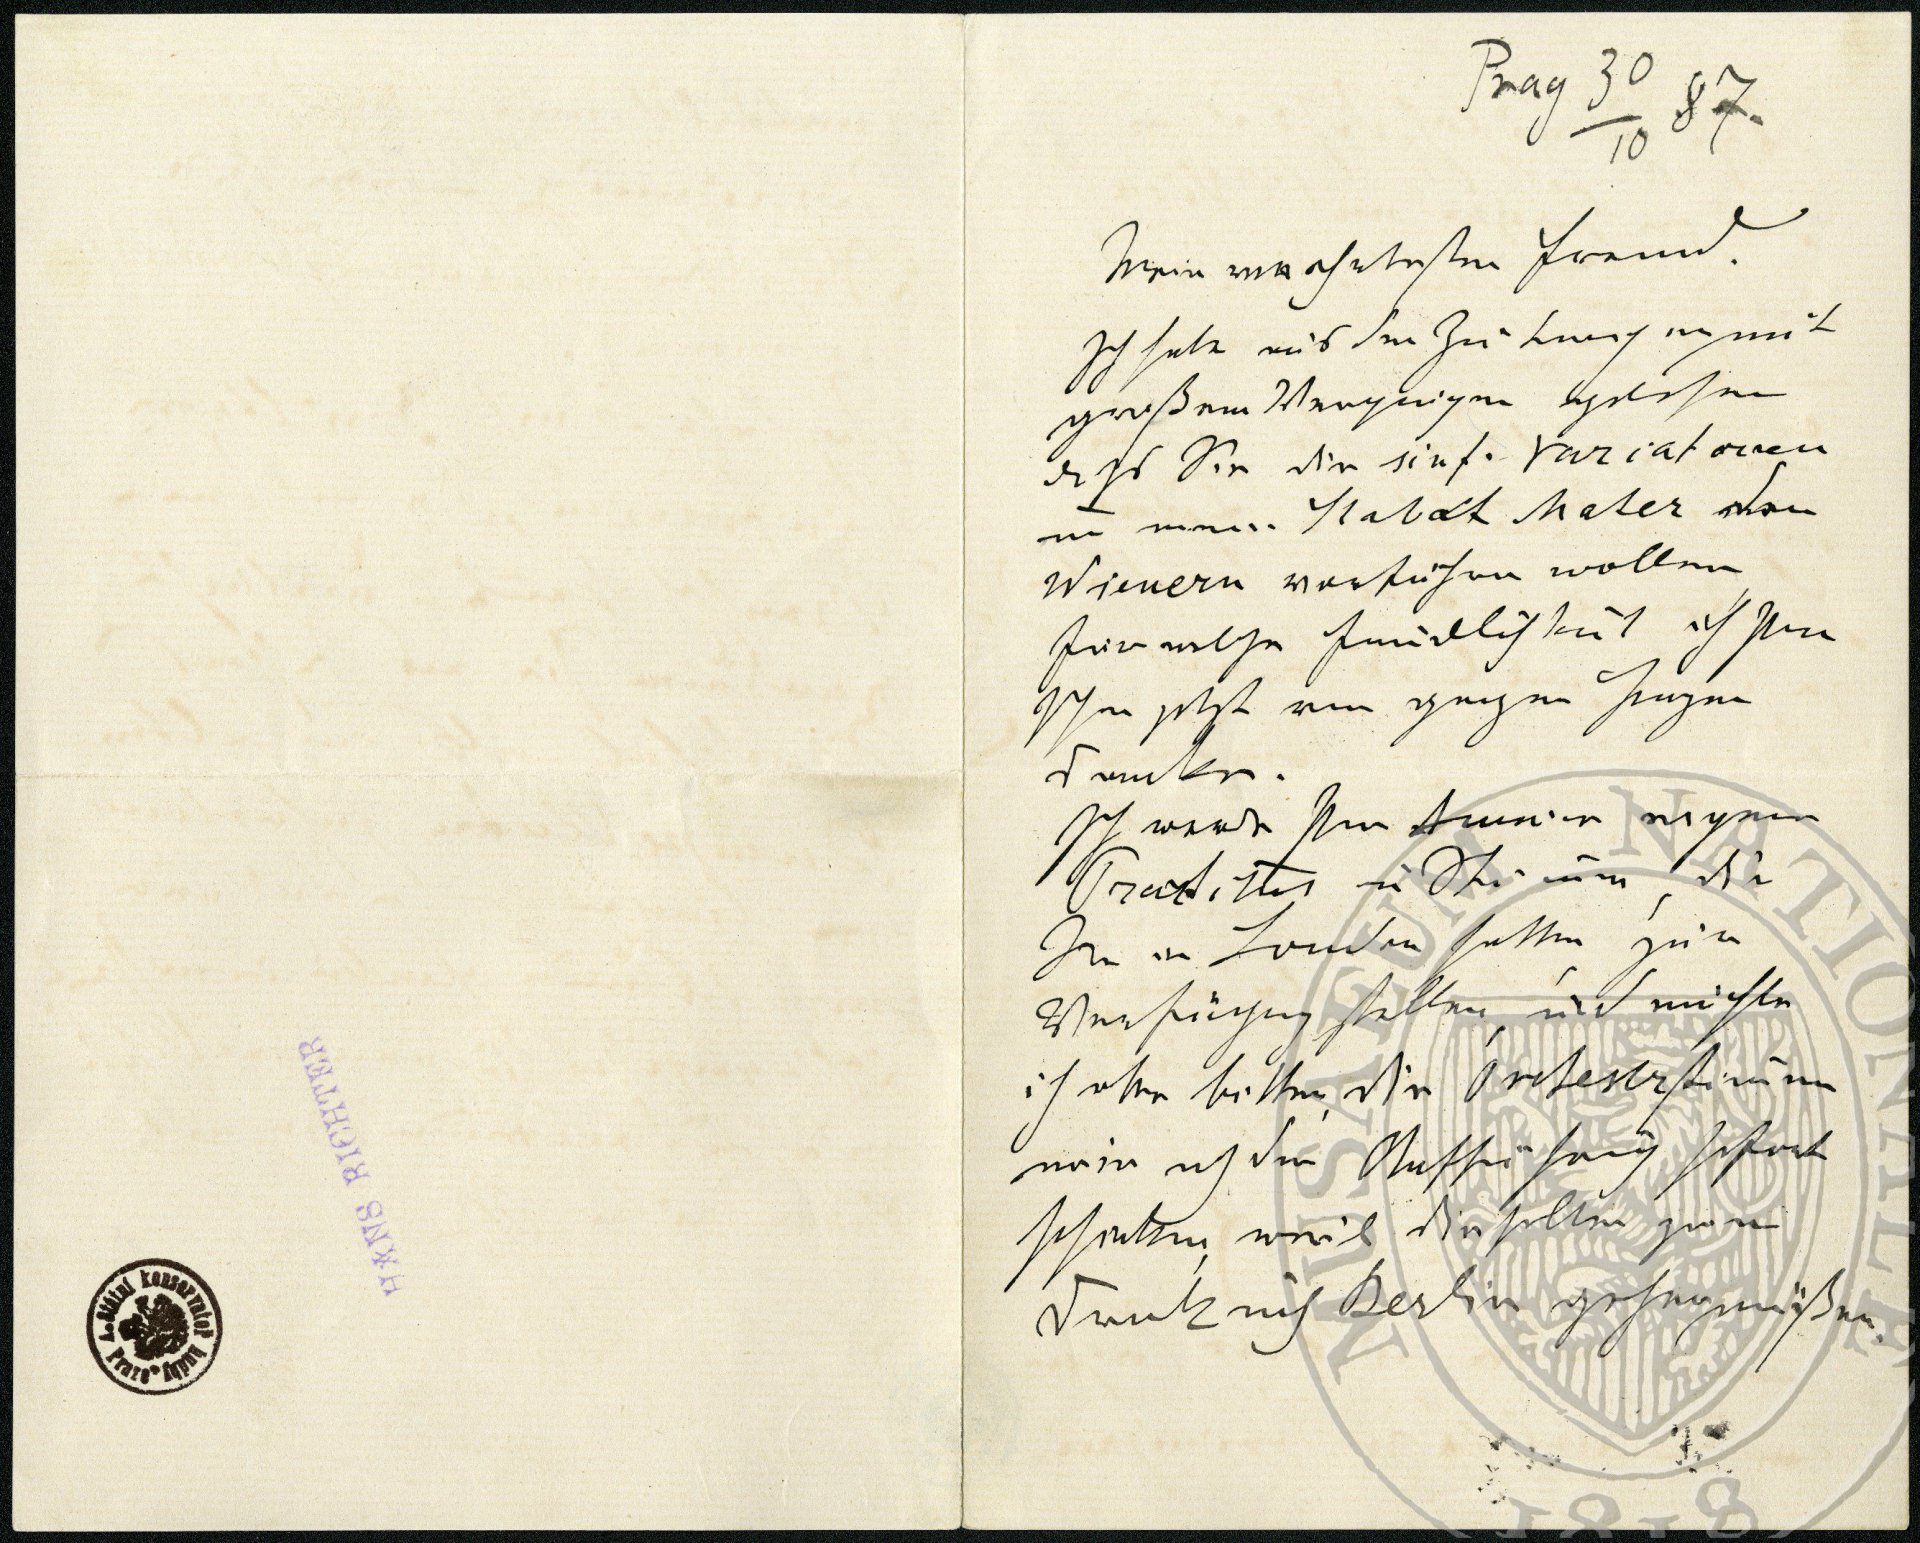 HANS RICHTER
I. státní konservatoř hudby Praze
Prag 30/10 87.
Mein verehrtester Freund.
Ich habe aus den Zeitungen mit
großem Vergnügen gelesen
daß Sie die sinf. Variationen
u Stabat Mater den
Wienern vorführen wollen,
für welche Freundlichkeit ich Ihnen
schon jetzt von ganzen Herzen
danke.
Ich werde Ihnen meine eigene
Partitur u Stimmen, die
Sie in London hatten, zur
Verfügung stellen, und möchte
ich aber bitten, die Orchesterstimmen
mir nach der Aufführung sofort
schicken, weil dieselben zum
Druck nach Berlin gehen müßen.
MUSAEUM NATIONALE
1818